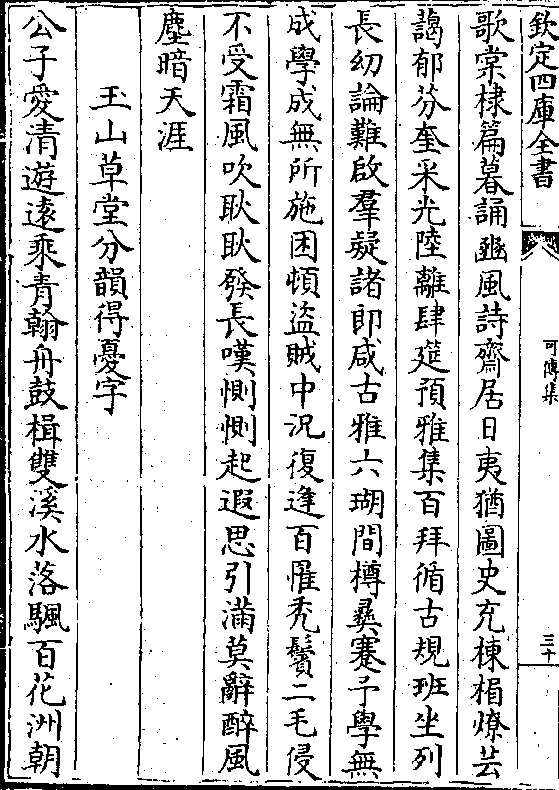 欽定四庫全書
可傳集
三十
歌棠棣篇暮誦豳風詩齋居日夷猶圖史充棟楣燎芸
藹郁芬奎采光陸離肆筵預雅集百拜循古規班坐列
長幼論難啟羣疑諸郎咸古雅六瑚間樽彞蹇予學無
成學成無所施困頓盜賊中況復逢百罹禿鬢二毛侵
不受霜風吹耿耿發長嘆惻惻起遐思引滿莫辭醉風
塵暗天涯
玉山草堂分韻得憂字
公子愛清遊遠乘青翰舟鼓楫雙溪水落颿百花洲朝